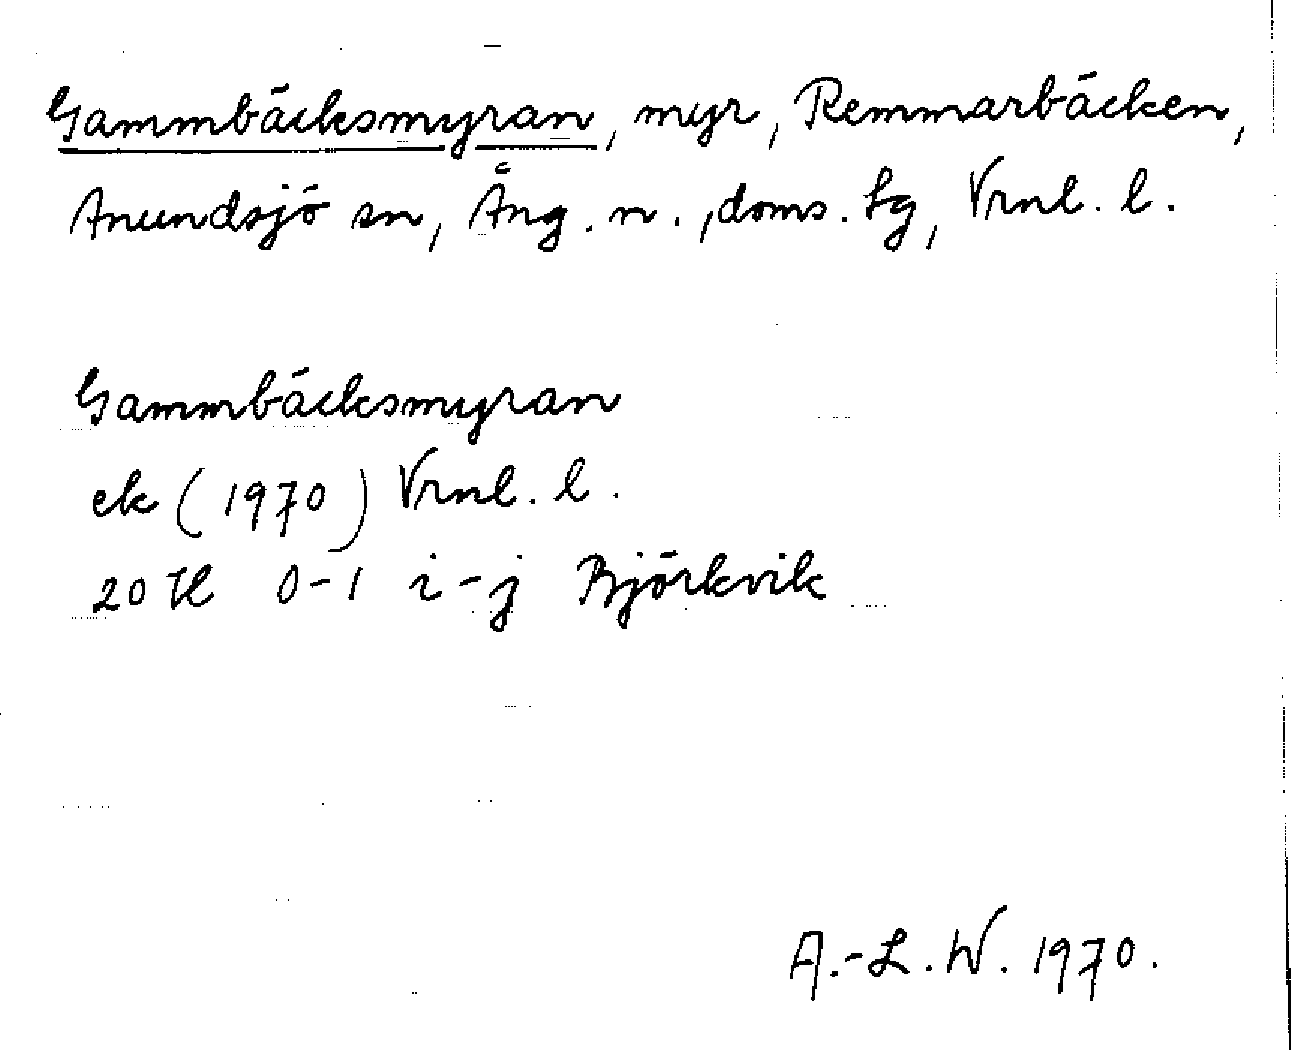 Gammbäcksmyran, myr, Remmarbäcken,
Anundsjö sn, Ång. n., doms. lg, Vrnl. l.
Gammbäcksmyran
ek (1970) Vrnl. l.
20 H 0-1 i-j Björkvik
A.-L. W. 1970.